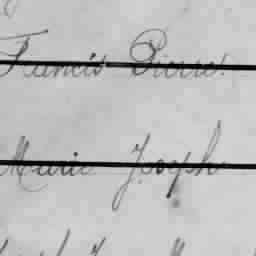 Francis Pierre.
Marie Joseph